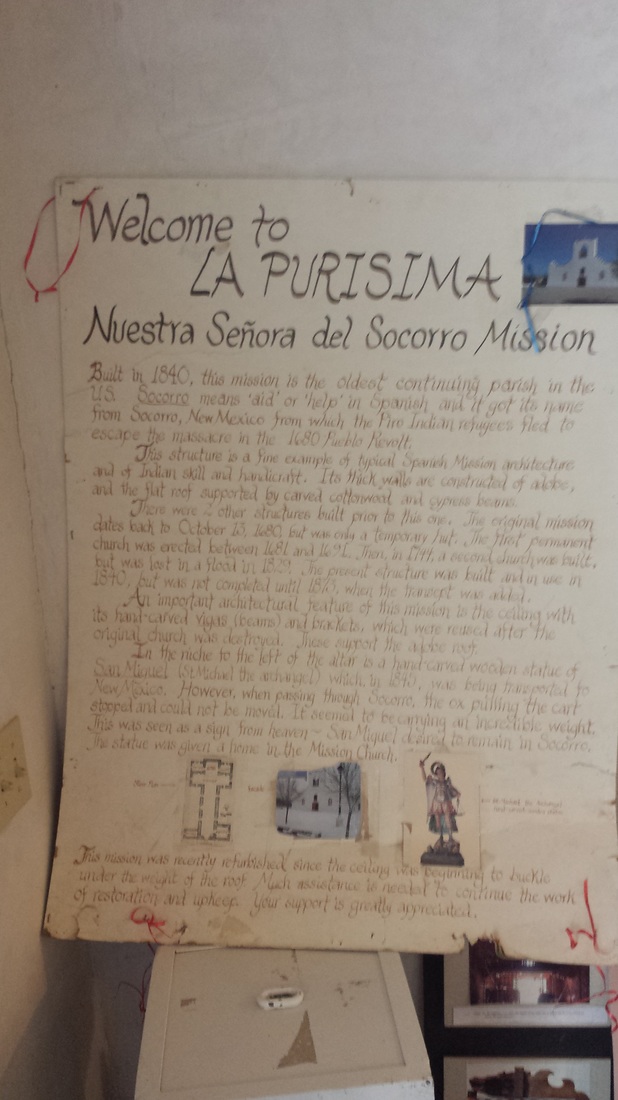 Welcome to
LA PURISIMA
Nuestra Señora del Socorro Mission
Built in 1840, this mission is the oldest continuing parish in the
U.S. Socorro means 'aid' or 'help' in Spanish and it got its name
from Socorro, New Mexico from which the Piro Indian refugees fled to
escape the massacre in the 1680 Pueblo Revolt.
This structure is a fine example of typical Spanish Mission architecture
and of Indian skill and handicraft. Its thick walls are constructed of adobe,
and the flat roof supported by carved cottonwood and cypress beams.
There were 2 other structures built prior to this one. The original mission
dates back to October 13, 1680, but was only a temporary hut. The first permanent
church was erected between 1681 and 1691. Then, in 1744, a second church was built,
but was lost in a flood in 1829. The present structure was built and in use in
1840, but was not completed until 1873, when the transept was added.
An important architectural feature of this mission is the ceiling with
its hand-carved vigas (beams) and brackets, which were reused after the
original church was destroyed. These support the adobe roof.
In the niche to the left of the altar is a hand-carved wooden statue of
San Miguel (St. Michael the archangel) which, in 1845, was being transported to
New Mexico. However, when passing through Socorro, the ox pulling the cart
stopped and could not be moved. It seemed to be carrying an incredible weight.
This was seen as a sign from heaven ~ San Miguel desired to remain in Socorro.
The statue was given a home in the Mission Church.
This mission was recently refurbished since the ceiling was beginning to buckle
under the weight of the roof. Much assistance is needed to continue the work
of restoration and upkeep. Your support is greatly appreciated.